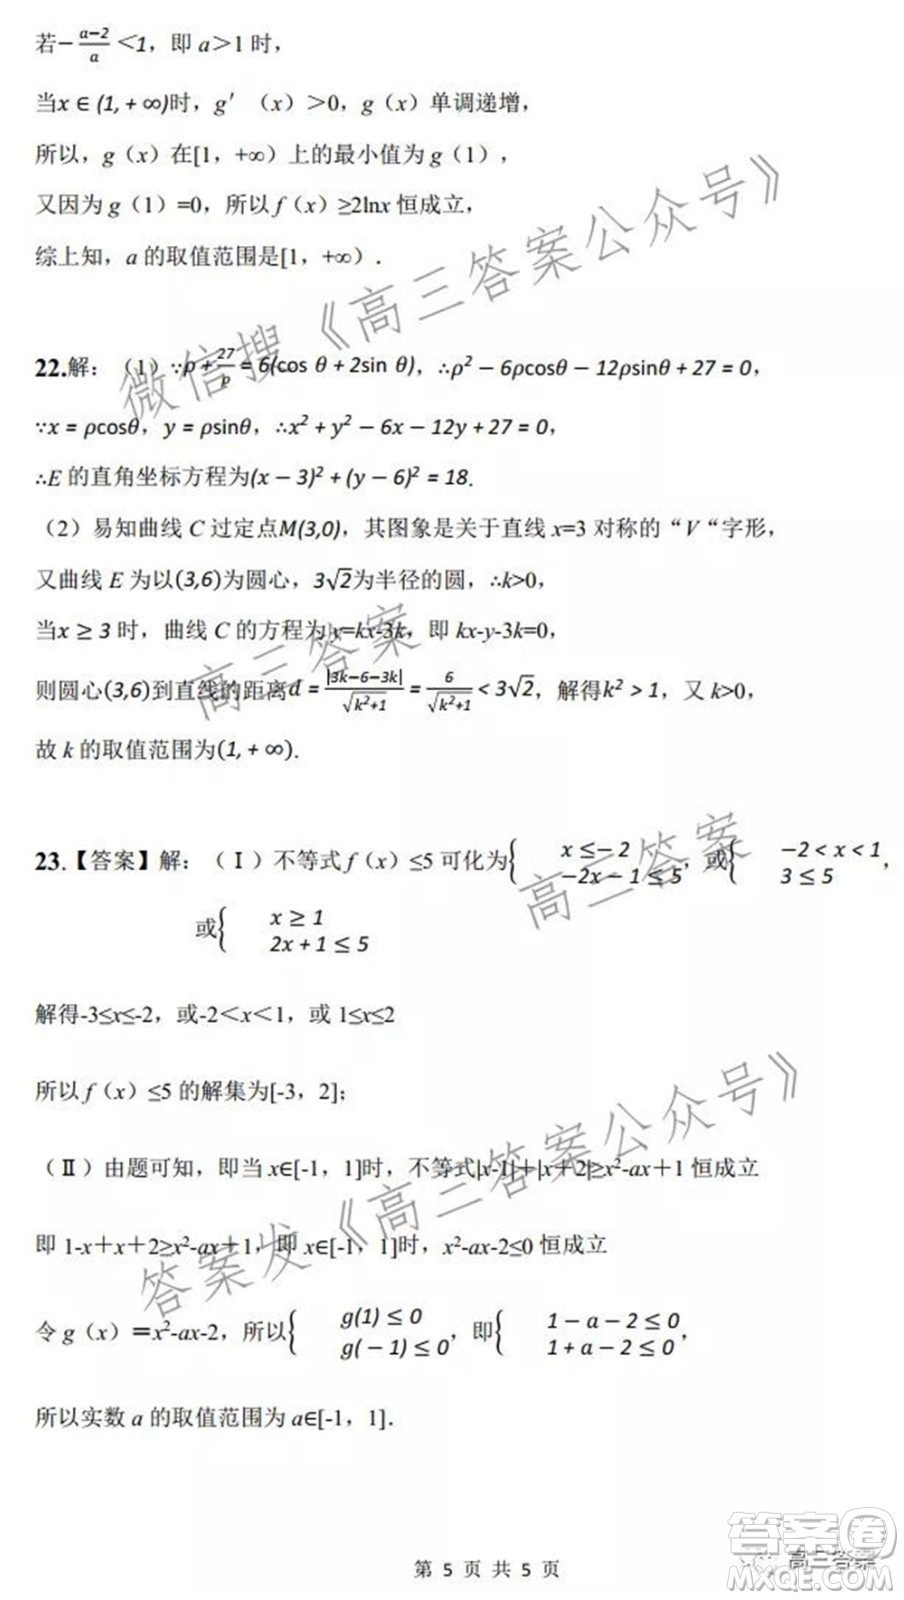 若-\frac{a-2}{a}<1，即 a＞1 时，
当x∈(1,+∞)时，g′（x）＞0，g（x）单调递增，
所以，g（x）在[1，+∞）上的最小值为 g（1），
又因为 g（1）=0，所以 f（x）≥2lnx 恒成立，
综上知，a 的取值范围是[1，+∞）.
22.解：（1）∵ρ+\frac{27}{ρ}=6(cos θ+2sin θ)，∴ρ²-6ρcosθ-12ρsinθ+27=0，
∵x=ρcosθ，y=ρsinθ，∴x²+y²-6x-12y+27=0，
∴E 的直角坐标方程为(x-3)²+(y-6)²=18.
（2）易知曲线 C 过定点M(3,0)，其图象是关于直线 x=3 对称的“V“字形，
又曲线 E 为以(3,6)为圆心，3√2为半径的圆，∴k>0，
当x≥3 时，曲线 C 的方程为 y=kx-3k，即 kx-y-3k=0，
则圆心(3,6)到直线的距离d=\frac{|3k-6-3k|}{\sqrt{k²+1}}=\frac{6}{\sqrt{k²+1}}<3√2，解得k²>1，又 k>0，
故 k 的取值范围为(1,+∞).
23.【答案】解：（Ⅰ）不等式 f（x）≤5 可化为{x≤-2 -2x-1≤5，或{-2<x<1 3≤5，
或{x≥1 2x+1≤5
解得-3≤x≤-2，或-2＜x＜1，或 1≤x≤2
所以 f（x）≤5 的解集为[-3，2]；
（Ⅱ）由题可知，即当 x∈[-1，1]时，不等式|x-1|＋|x＋2|≥x²-ax＋1 恒成立
即 1-x＋x＋2≥x²-ax＋1，即 x∈[-1，1]时，x²-ax-2≤0 恒成立
令 g（x）＝x²-ax-2，所以{g(1)≤0 g(-1)≤0，即{1-a-2≤0 1+a-2≤0，
所以实数 a 的取值范围为 a∈[-1，1].
第 5 页 共 5 页
微信搜《高三答案公众号》
高三答案
高三答案
答案发《高三答案公众号》
答案卷
高三答案
MXQE.COM